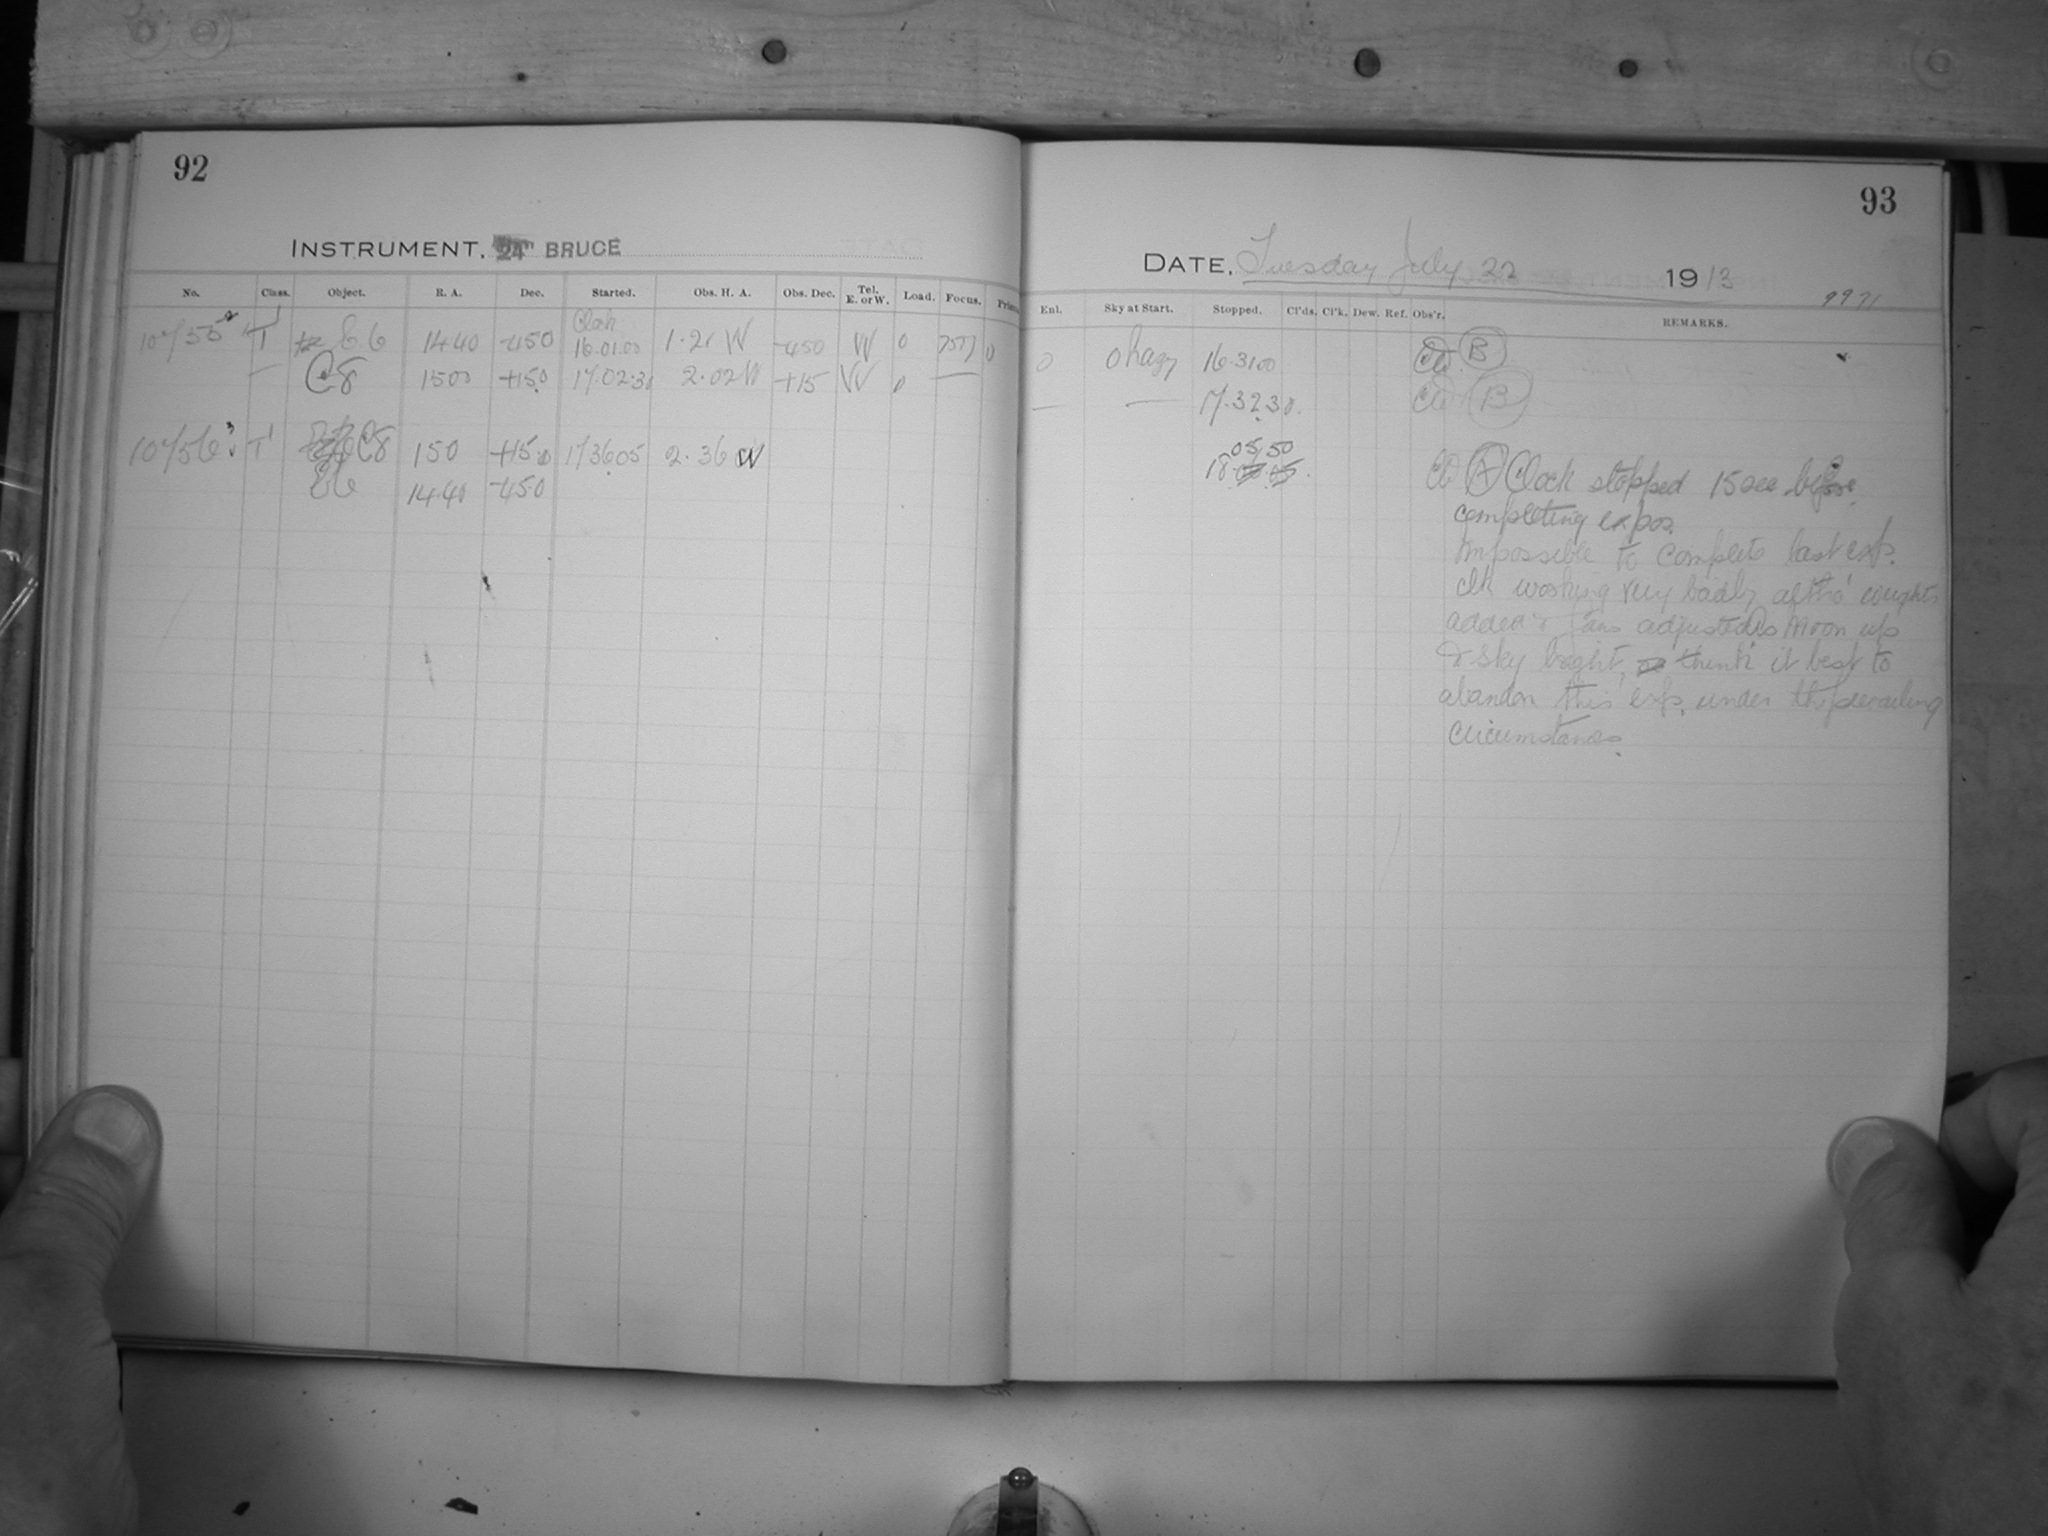 92
INSTRUMENT, 24" BRUCE
No. Class. Object. R. A. Dec. Started. Obs. H. A. Obs. Dec. Tel. E. or W. Load. Focus.
Clock
T 66 14 40 -450 16.01.00 1.21 W -450 W 0 0
— C8 1500 +150 17.02.30 2.02 W +15 W 0 —
T C8 150 +150 173605 2.36 W
14.40 -450
93
DATE, Tuesday July 22 1913
9971
Enl. Sky at Start. Stopped. Cl'ds. Cl'k. Dew. Ref. Obs'r. REMARKS.
0 0 hazy 16.3100 B
— — 17.32.30. B
05.50
18. A Clock stopped 15 sec before
completing expos.
Impossible to complete last exp.
clk working very badly altho' weights
added & fans adjusted Moon up
& sky bright, think it best to
abandon this exp. under the prevailing
circumstances.